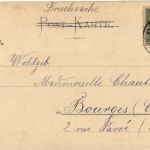 Drucksache
Post-Karte.
Wohlgeb
Mademoiselle Chaut
Bourges (C
2 rue Pavée (